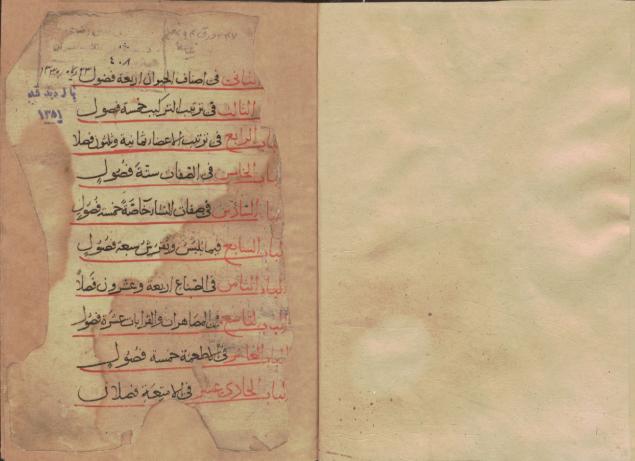 الثانى فى اصناف الحيوان اربعة فصول
الثالث فى ترتيب التركيب خمسة فصول
الباب الرابع فى ترتيب الاعضا ثمانية وثلثون فصلا
الباب الخامس فى الصفات ستة فصول
الباب السادس فى صفات النساء خاصّة خمسة فصول
الباب السابع فيما يلبس ويفترش سبعة فصول
الباب الثامن فى الصناع اربعة وعشرون فصلا
الباب التاسع فى المصاهرات والقرابات عشرة فصول
الباب العاشر فى الاطعمة خمسة فصول
الباب الحادى عشر فى الامتعة فصلان
بازدید شد
۱۳۵۱